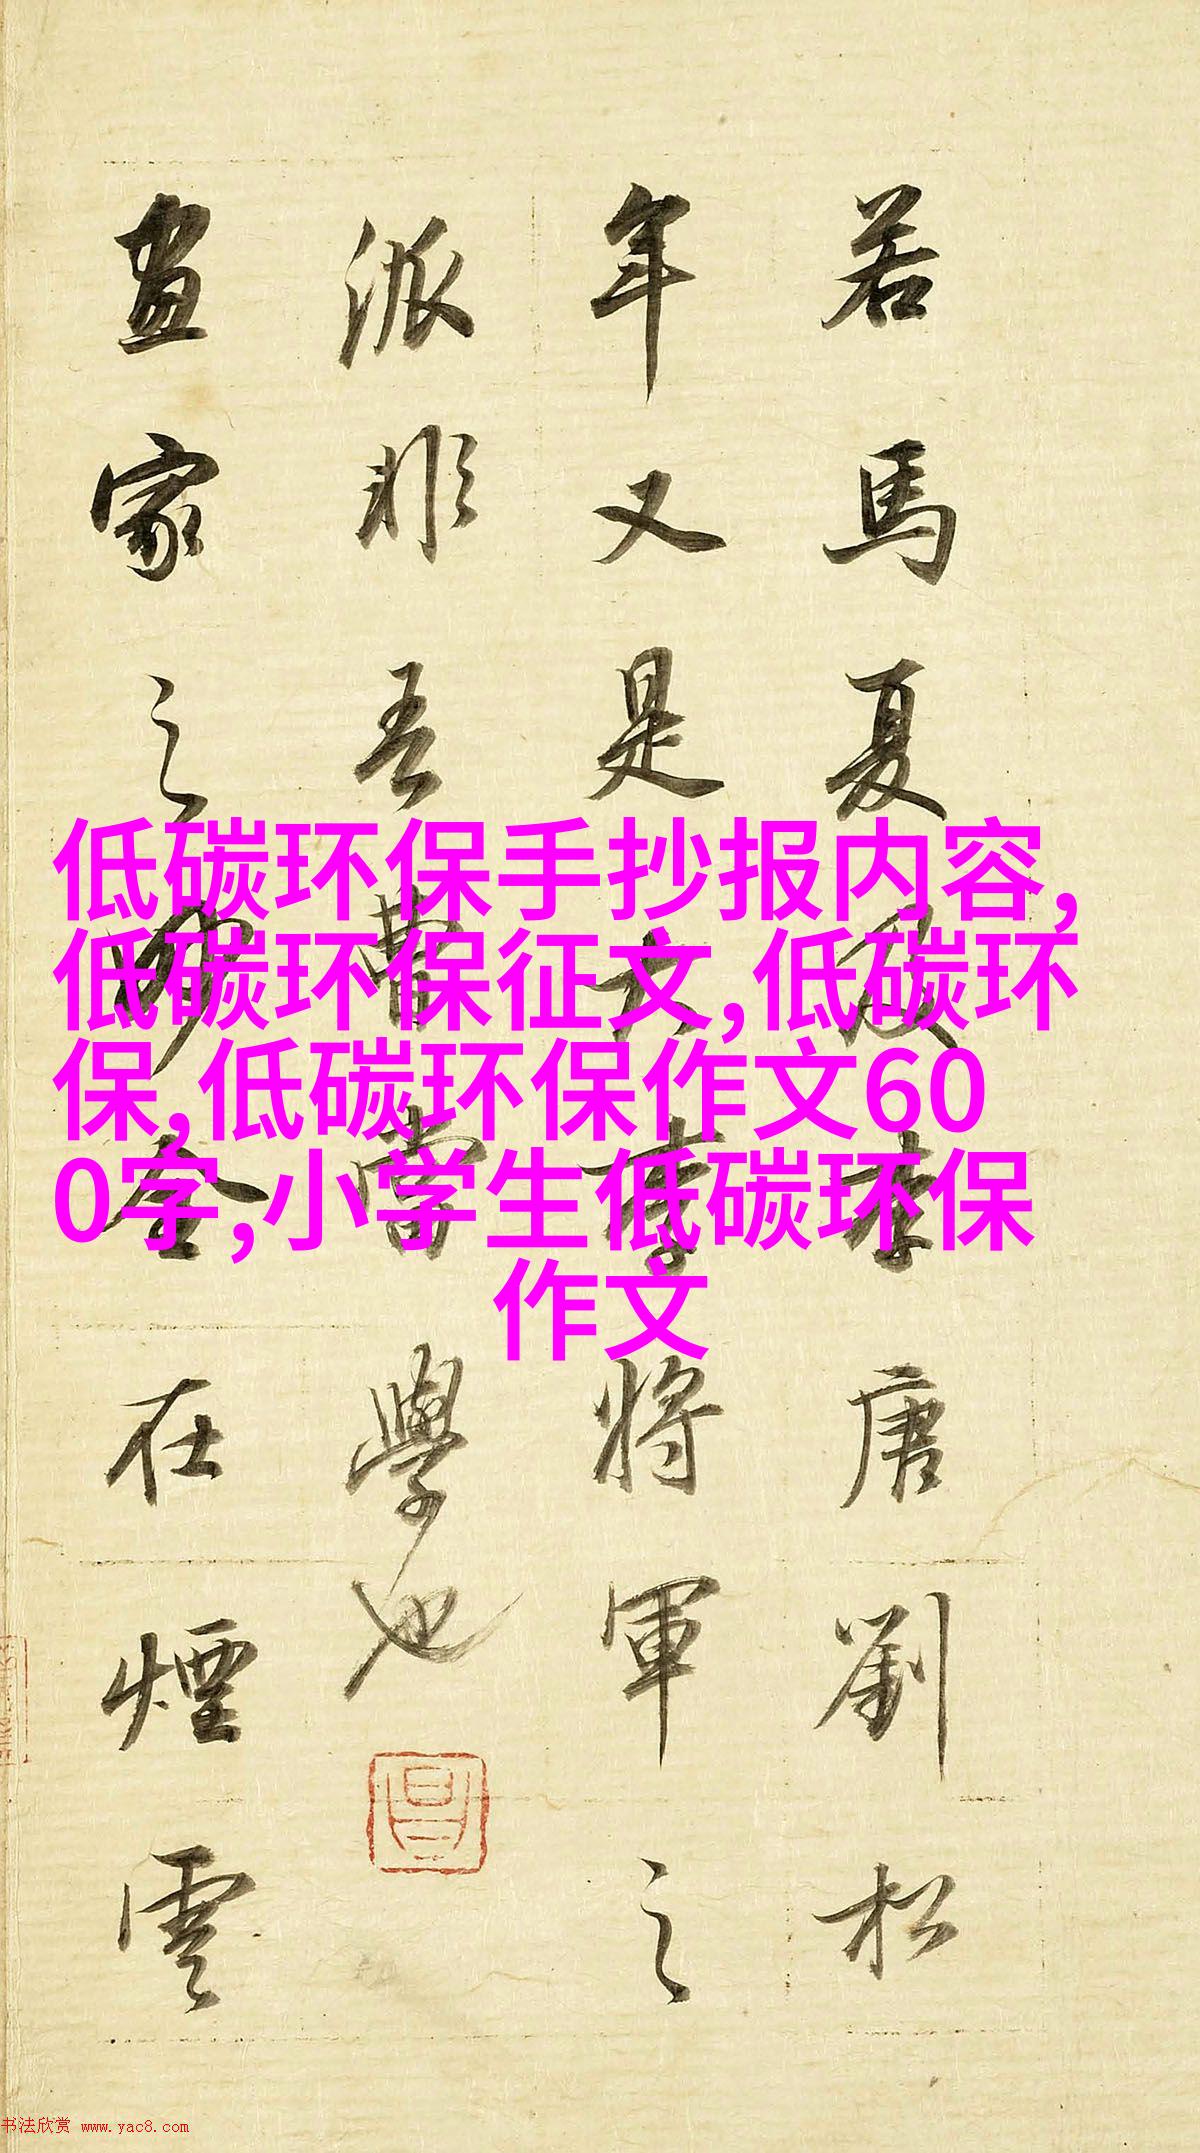 若馬夏及李唐劉松
年又是大李將軍之
派非吾曹當學也
畫家之妙全在煙雲
低碳环保手抄报内容,
低碳环保征文,低碳环
保,低碳环保作文60
0字,小学生低碳环保
作文
书法欣赏 www.yac8.com